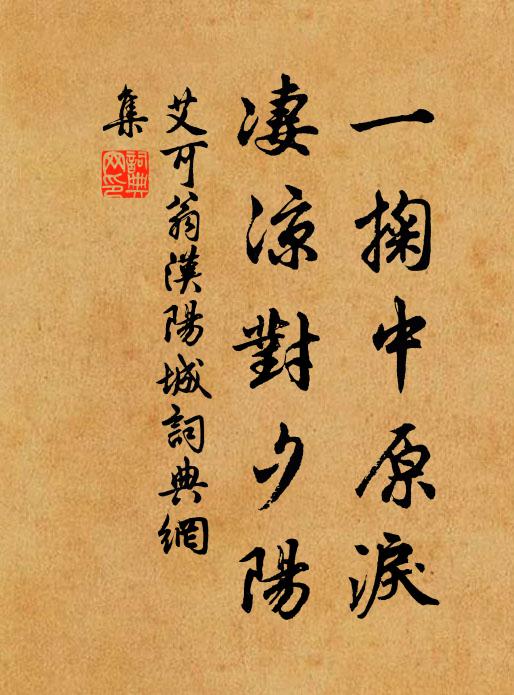 一掬中原淚
凄涼對夕陽
艾可翁漢陽城詞典網
集
詞典
网印